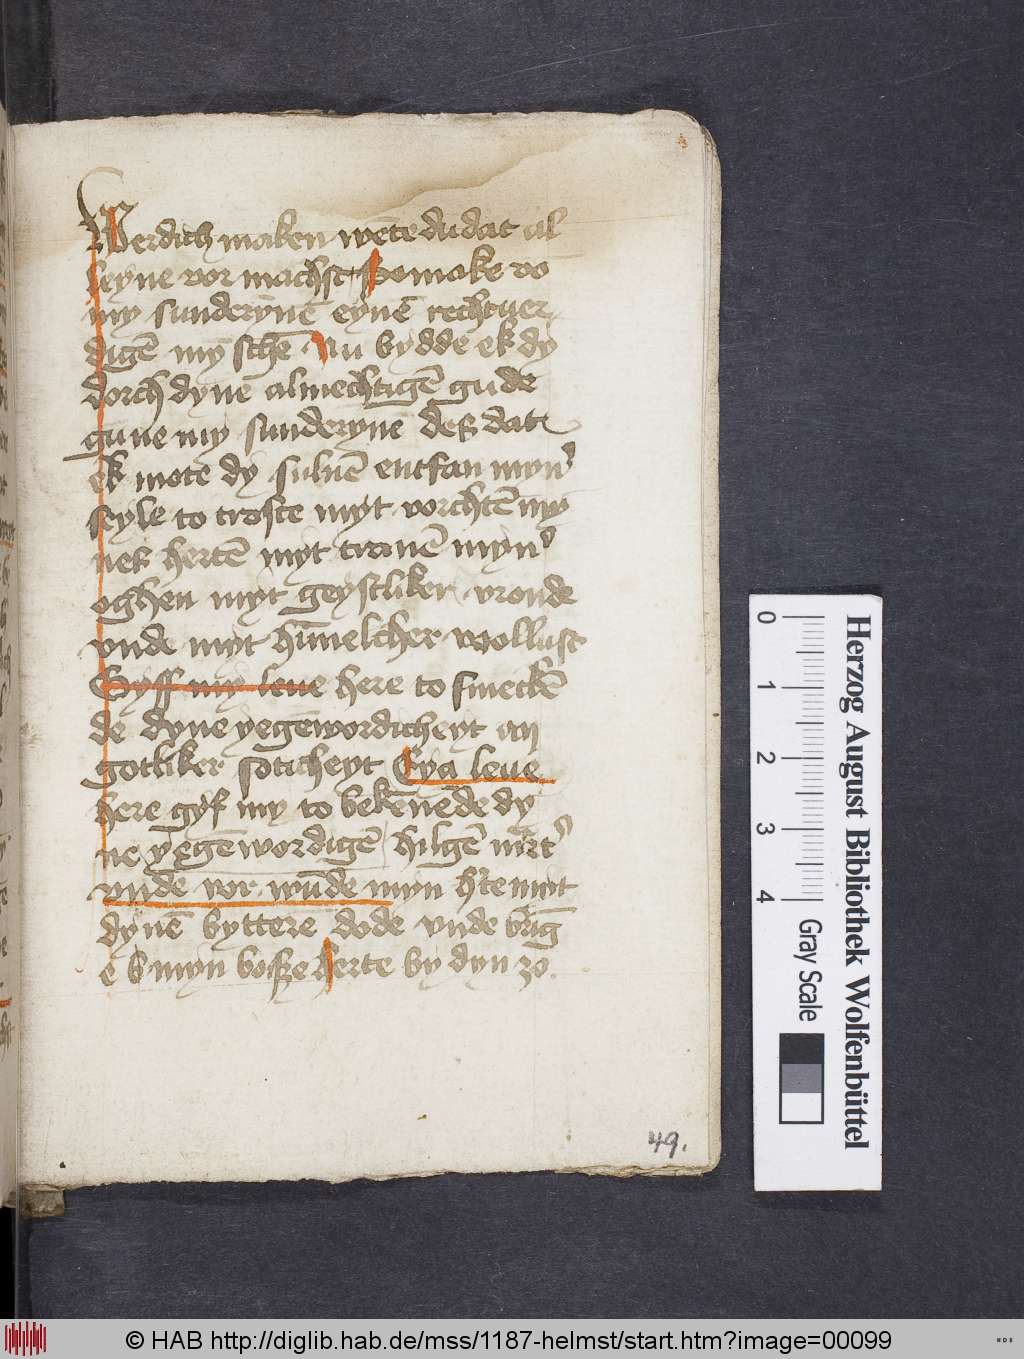 Werdich maken wēte du dat al
leyne vor machst So make vō
my sunderȳnē eynē rechtuer
digē my schē Nu bydde ek dy
dorch dynē almechtigē gude
gūne my sunderyne des dat
ek mote dy suluē entfan myn̛
seyle to troste myt vorchtē my
nes hertē myt tranē myn̛
oghen myt geystliker vronde
vnde myt hīmelcher wollust
Gyff my leue here to smeckē
de dyne yegēwordicheyt an
gotliker soticheyt Eya leue
here gyf my to bekēnēde dy
ne yegēwordigē hilgē
vnde vor wūde myn hᵗte myt
dynē byttere dode vnde brīg
ek myn bosze herte by dyn zo
49.
0 1 2 3 4
Gray Scale
Herzog August Bibliothek Wolfenbüttel
© HAB http://diglib.hab.de/mss/1187-helmst/start.htm?image=00099
WDB